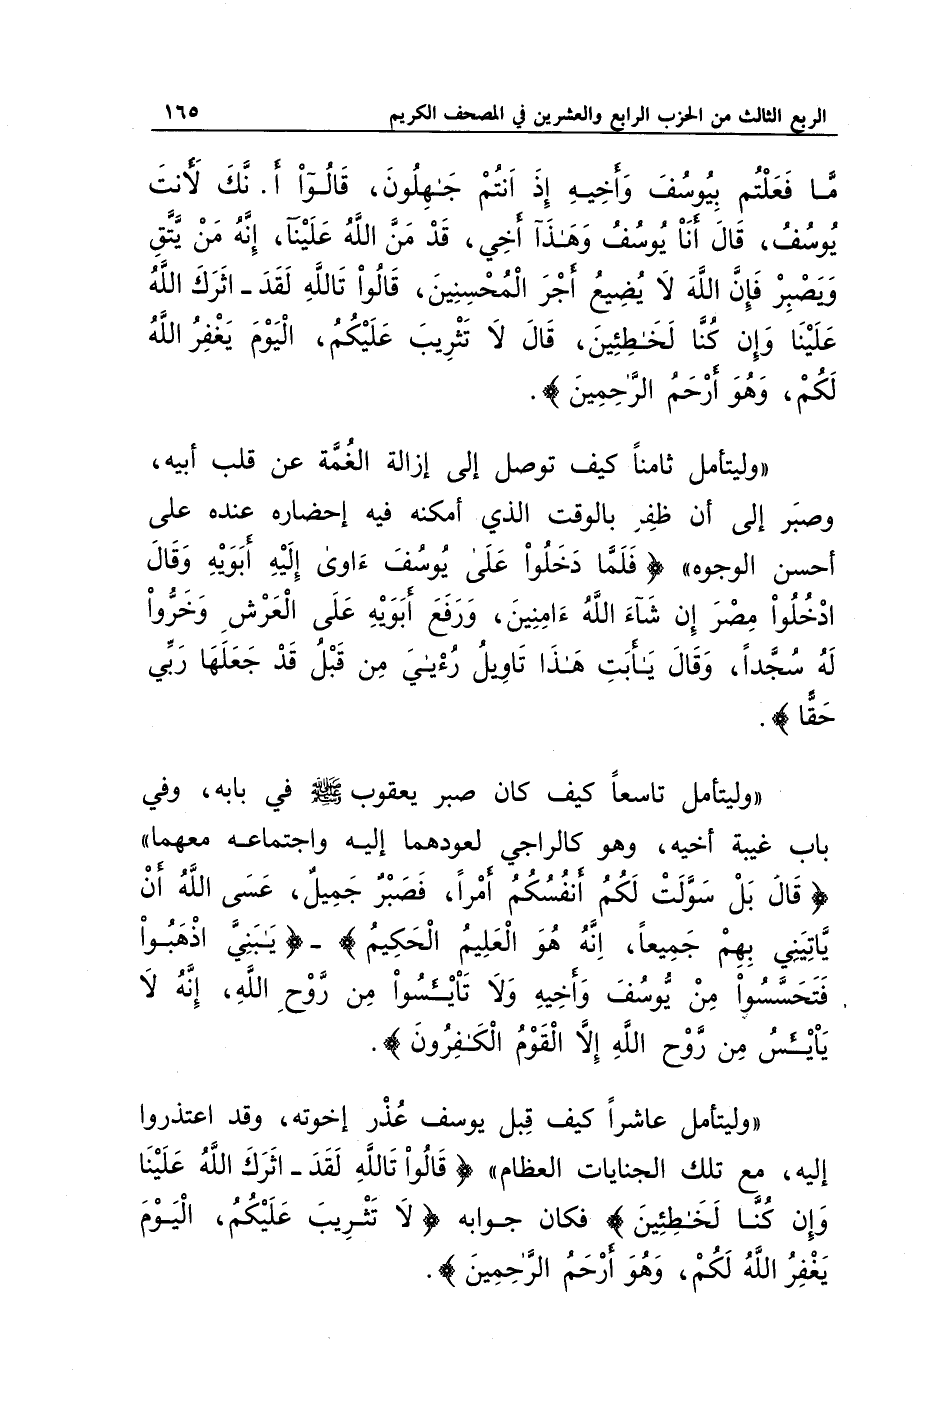 الربع الثالث من الحزب الرابع والعشرين في المصحف الكريم ١٦٥
مَّا فَعَلْتُم بِيُوسُفَ وَأَخِيهِ إِذَ اَنتُمْ جَـٰهِلُونَ، قَالُوٓاْ أَ. نَّكَ لَأَنتَ
يُوسُفُ، قَالَ أَنَاْ يُوسُفُ وَهَـٰذَآ أَخِي، قَدْ مَنَّ اللَّهُ عَلَيْنَآ، إِنَّهُ مَنْ يَّتَّقِ
وَيَصْبِرْ فَإِنَّ اللَّهَ لَا يُضِيعُ أَجْرَ الْمُحْسِنِينَ، قَالُواْ تَاللَّهِ لَقَدَ ـ اثَرَكَ اللَّهُ
عَلَيْنَا وَإِن كُنَّا لَخَـٰطِئِينَ، قَالَ لَا تَثْرِيبَ عَلَيْكُمُ، الْيَوْمَ يَغْفِرُ اللَّهُ
لَكُمْ، وَهُوَ أَرْحَمُ الرَّٰحِمِينَ ﴾.
«وليتأمل ثامناً كيف توصل إلى إزالة الغُمَّة عن قلب أبيه،
وصبَر إلى أن ظفِر بالوقت الذي أمكنه فيه إحضاره عنده على
أحسن الوجوه» ﴿ فَلَمَّا دَخَلُواْ عَلَىٰ يُوسُفَ ءَاوىٰ إِلَيْهِ أَبَوَيْهِ وَقَالَ
ادْخُلُواْ مِصْرَ إِن شَآءَ اللَّهُ ءَامِنِينَ، وَرَفَعَ أَبَوَيْهِ عَلَى الْعَرْشِ وَخَرُّواْ
لَهُ سُجَّداً، وَقَالَ يَـٰأَبَتِ هَـٰذَا تَاوِيلُ رُءْيَـٰيَ مِن قَبْلُ قَدْ جَعَلَهَا رَبِّي
حَقًّا ﴾.
«وليتأمل تاسعاً كيف كان صبر يعقوب ﷺ في بابه، وفي
باب غيبة أخيه، وهو كالراجي لعودهما إليه واجتماعه معهما»
﴿ قَالَ بَلْ سَوَّلَتْ لَكُمُ أَنفُسُكُمُ أَمْراً، فَصَبْرٌ جَمِيلٌ، عَسَى اللَّهُ أَنْ
يَّاتِيَنِي بِهِمْ جَمِيعاً، اِنَّهُ هُوَ الْعَلِيمُ الْحَكِيمُ ﴾ ـ ﴿ يَـٰبَنِيَّ اذْهَبُواْ
فَتَحَسَّسُواْ مِنْ يُّوسُفَ وَأَخِيهِ وَلَا تَاْيْـَٔسُواْ مِن رَّوْحِ اللَّهِ، إِنَّهُ لَا
يَاْيْـَٔسُ مِن رَّوْحِ اللَّهِ إِلَّا الْقَوْمُ الْكَـٰفِرُونَ ﴾.
«وليتأمل عاشراً كيف قِبل يوسف عُذْر إخوته، وقد اعتذروا
إليه، مع تلك الجنايات العظام» ﴿ قَالُواْ تَاللَّهِ لَقَدَ ـ اثَرَكَ اللَّهُ عَلَيْنَا
وَإِن كُنَّا لَخَـٰطِئِينَ ﴾ فكان جوابه ﴿ لَا تَثْرِيبَ عَلَيْكُمُ، الْيَوْمَ
يَغْفِرُ اللَّهُ لَكُمْ، وَهُوَ أَرْحَمُ الرَّٰحِمِينَ ﴾.